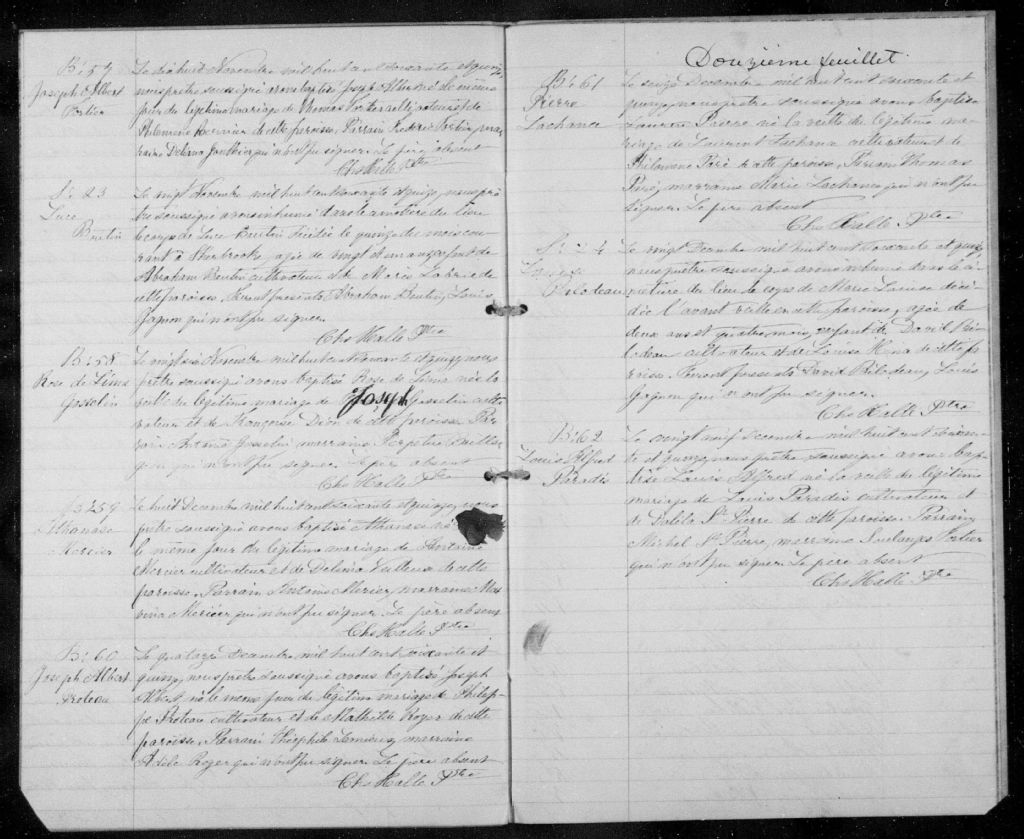 B: 57
Joseph Albert
Fortier
Le dix huit Novembre mil huit cent soixante et quinze
nous prêtre soussigné avons baptisé Joseph Albert né le même
jour du légitime mariage de Thomas Fortier cultivateur et de
Philomène Mercier de cette paroisse, Parrain Frédéric Fortier, mar
raine Delima Gauthier qui n'ont pu signer. Le père absent
Chs Halle Ptre
S: 23
Luce
Breton
Le vingt Novembre mil huit cent soixante et quinze, nous prê
tre soussigné avons inhumé dans le cimetière du lieu
le corps de Luce Breton décédée le quinze du mois cou
rant à Sherbrooke, agée de vingt et un ans, enfant de
Abraham Breton cultivateur et de Marie Labrie de
cette paroisse. Furent présents Abraham Breton, Louis
Gagnon qui n'ont pu signer.
Chs Halle Ptre
B: 58
Rose de Lima
Gosselin
Le vingt six Novembre mil huit cent soixante et quinze nous
prêtre soussigné avons baptisé Rose de Lima née la
veille du légitime mariage de Joseph Gosselin culti
vateur et de Françoise Dion de cette paroisse Par
rain Gosselin marraine
qui n'ont pu signer. Le père absent
Chs Halle Ptre
B: 59
Athanase
Mercier
Le huit Decembre mil huit cent soixante et quinze, nous
prêtre soussigné avons baptisé Athanase né
le même jour du légitime mariage de Antoine
Mercier cultivateur et de Delima Veilleux de cette
paroisse. Parrain Antoine Mercier, marraine Mal
vina Mercier qui n'ont pu signer. Le père absent
Chs Halle Ptre
B: 60
Joseph Albert
Proteau
Le quatorze Decembre mil huit cent soixante et
quinze, nous prêtre soussigné avons baptisé Joseph
Albert né le même jour du légitime mariage de Philip
pe Proteau cultivateur et de Mathilde Roger de cette
paroisse. Parrain Théophile Lemieux marraine
Adèle Roger qui n'ont pu signer. Le père absent
Chs Halle Ptre
Douzième feuillet
B: 61
Pierre
Lachance
Le seize Decembre mil huit cent soixante et
quinze nous prêtre soussigné avons baptisé
Pierre né la veille du légitime ma
riage de Laurent Lachance cultivateur et de
Philomène Paré de cette paroisse, Parrain Thomas
Paré, marraine Marie Lachance qui n'ont pu
signer. Le père absent
Chs Halle Ptre
S: 24
Louise
Bilodeau
Le vingt Decembre mil huit cent soixante et quinze
nous prêtre soussigné avons inhumé dans le ci
metière du lieu le corps de Marie Louise décé
dée l'avant veille en cette paroisse, agée de
deux ans et quatre mois, enfant de David Bi
lodeau cultivateur et de Louise de cette pa
roisse. Furent présents David Bilodeau, Louis
Gagnon qui n'ont pu signer.
Chs Halle Ptre
B: 62
Louis Alfred
Paradis
Le vingt neuf Decembre mil huit cent soixan
te et quinze, nous prêtre soussigné avons bap
tisé Louis Alfred né la veille du légitime
mariage de Louis Paradis cultivateur et
de Dalila St Pierre de cette paroisse. Parrain
Michel St Pierre, marraine Soulanges Fortier
qui n'ont pu signer. Le père absent
Chs Halle Ptre